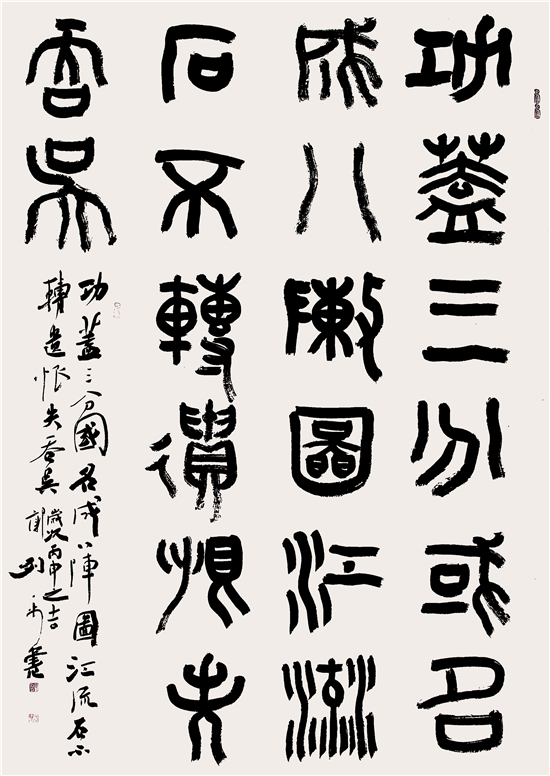 功蓋三分或名
成八敶圖江流
石不轉遺恨失
吞吳
功蓋三分國名成八陣圖江流石不
轉遺恨失吞吳
歲次丙申之吉